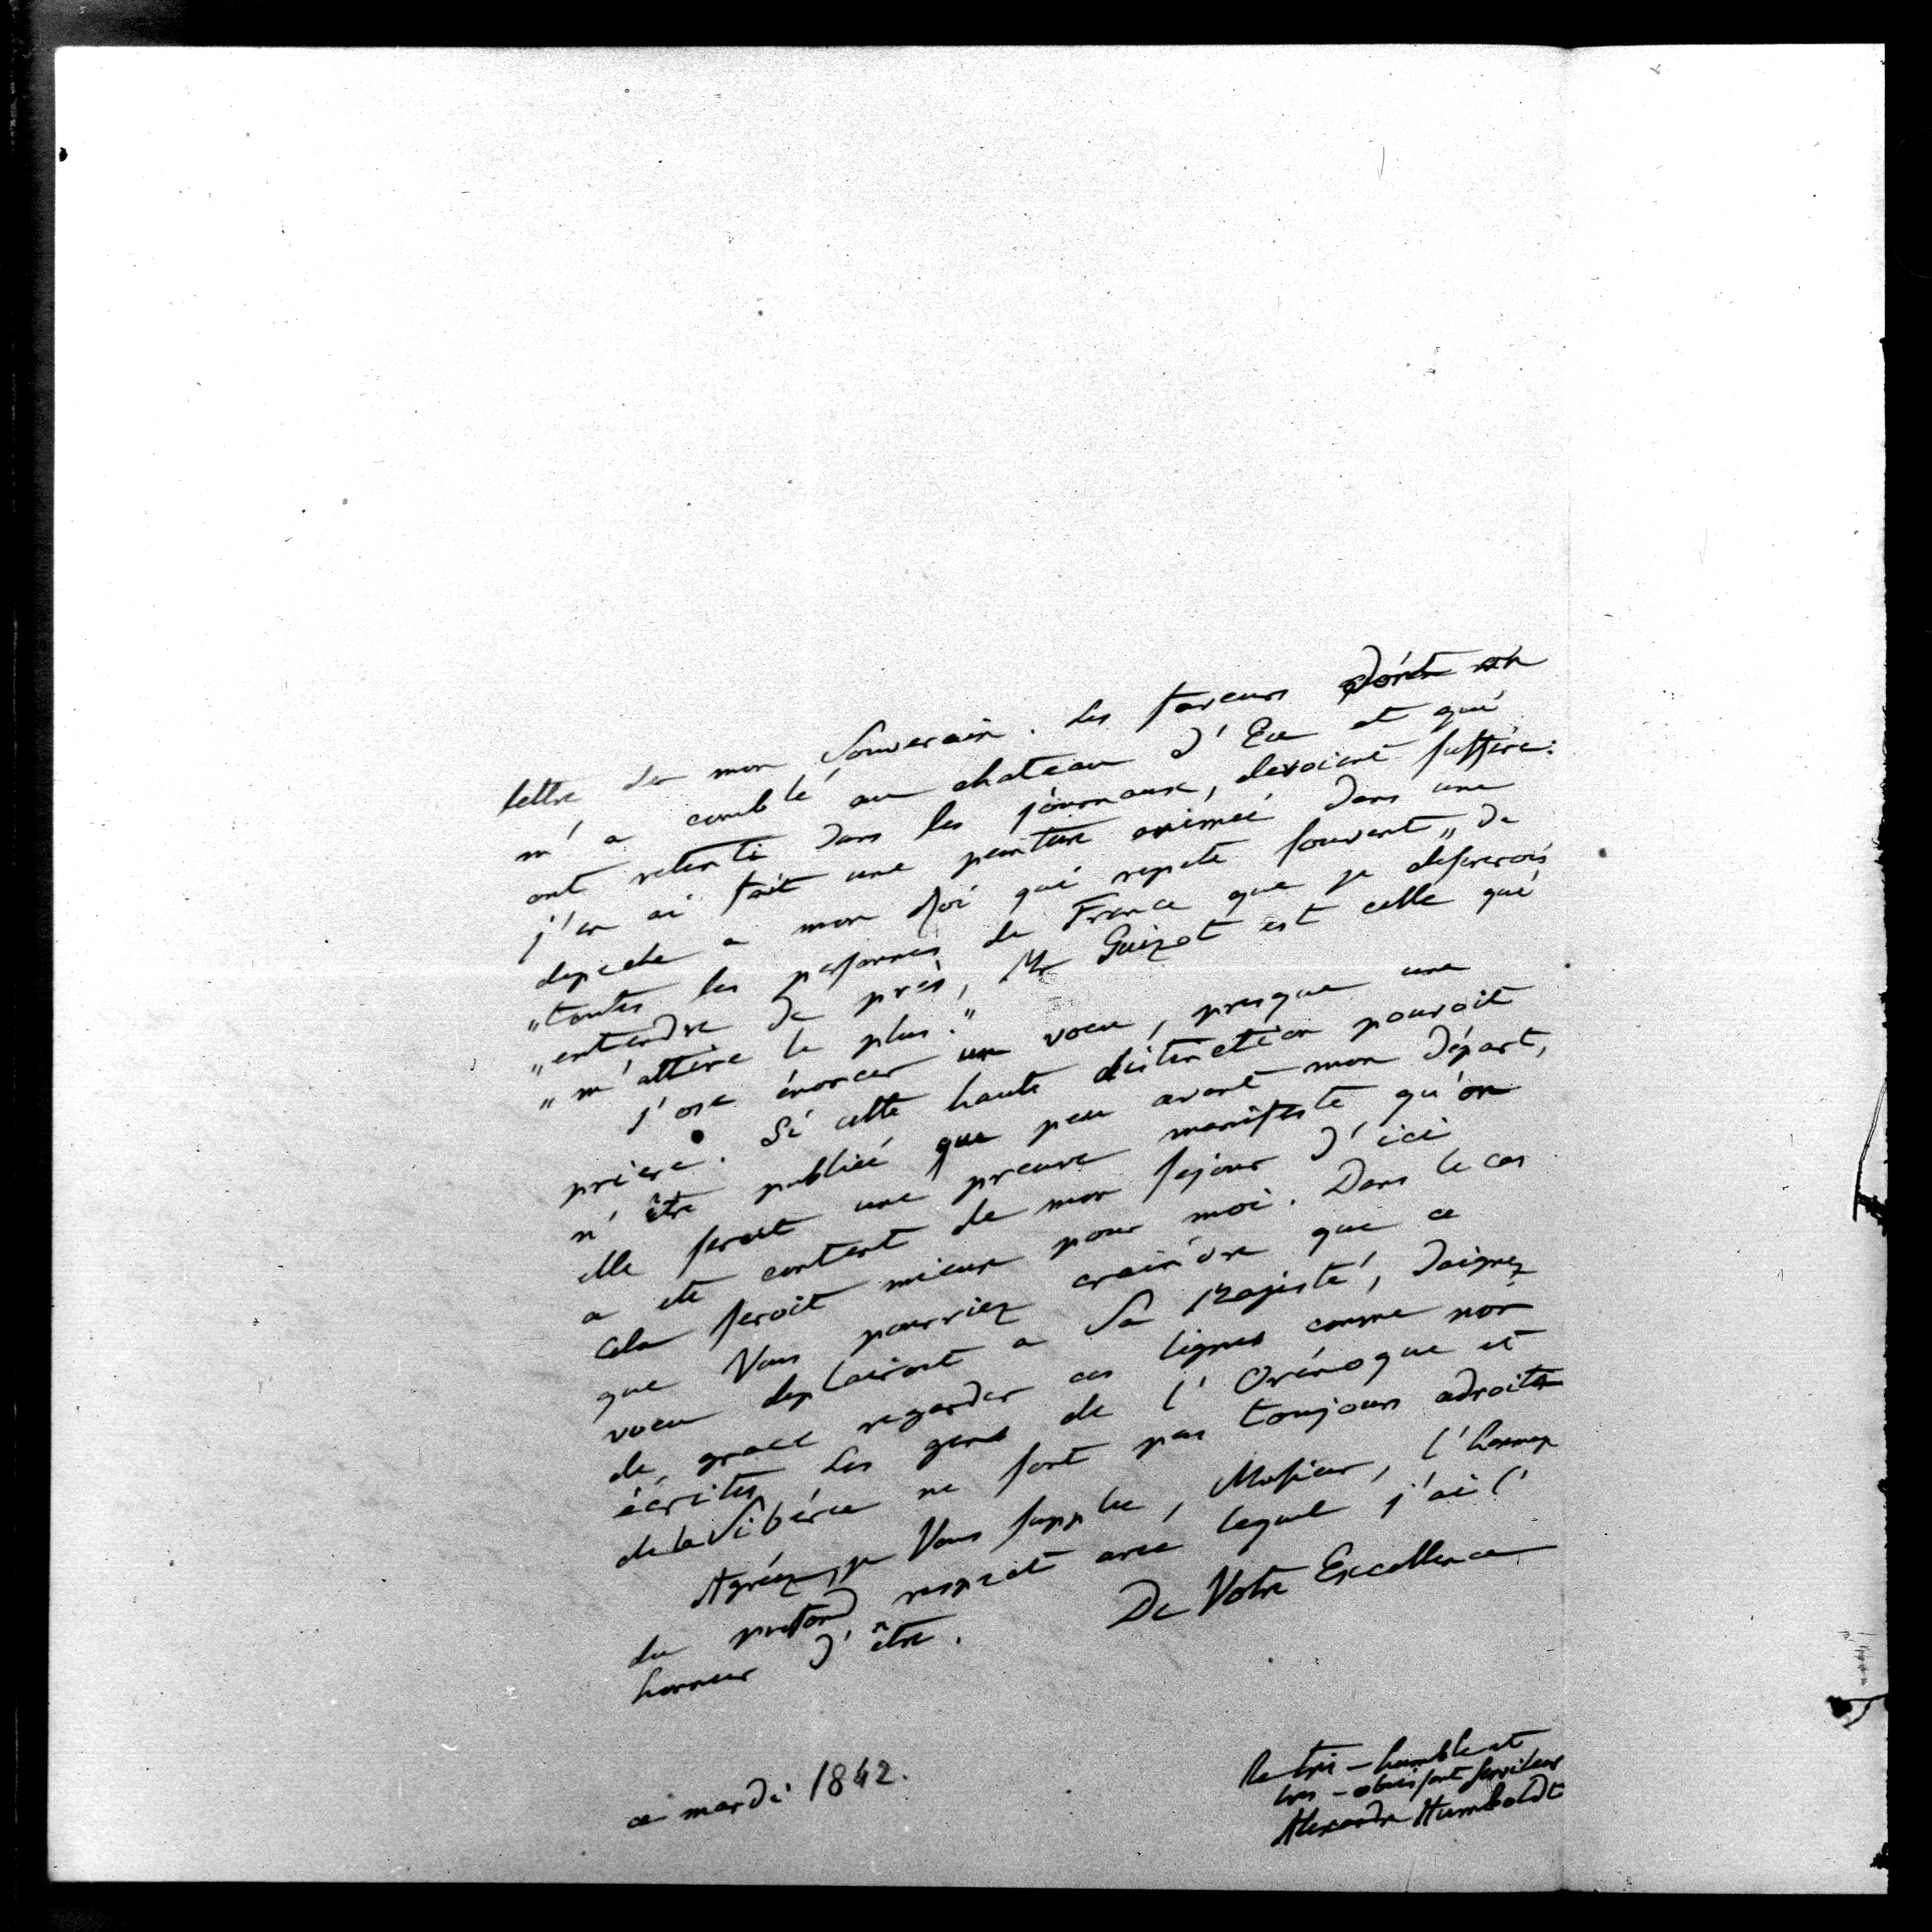 lettre de mon Souverain. Les faveurs dont on
m'a comblé au chateau d'Eu et qui
ont retenti dans les journaux, devoient suffire:
j'en ai fait une peinture animée dans une
depeche a mon Roi qui repete souvent „de
„toutes les personnes de France que je desirerois
„entendre de près, Mr Guizot est celle qui
„m'attire le plus."
J'ose énoncer un voeu, presque une
priere. Si cette haute distinction pouvoit
n'être publiée que peu avant mon départ,
elle seroit une preuve manifeste qu'on
a eté content de mon sejour d'ici
Cela seroit mieux pour moi. Dans le cas
que Vous pourriez craindre que ce
voeu deplairoit a Sa Majesté, daignez
de, grace regarder ces lignes comme non
écrites. Les gens de l'Orénoque et
de la Sibérie ne sont pas toujours adroits
Agréez, je Vous supplie, Monsieur, l'hommage
du profond respect avec lequel j'ai l'
honneur d'être.
De Votre Excellence
le très-humble et
très-obeissant serviteur
Alexandre Humboldt
ce mardi 1842.